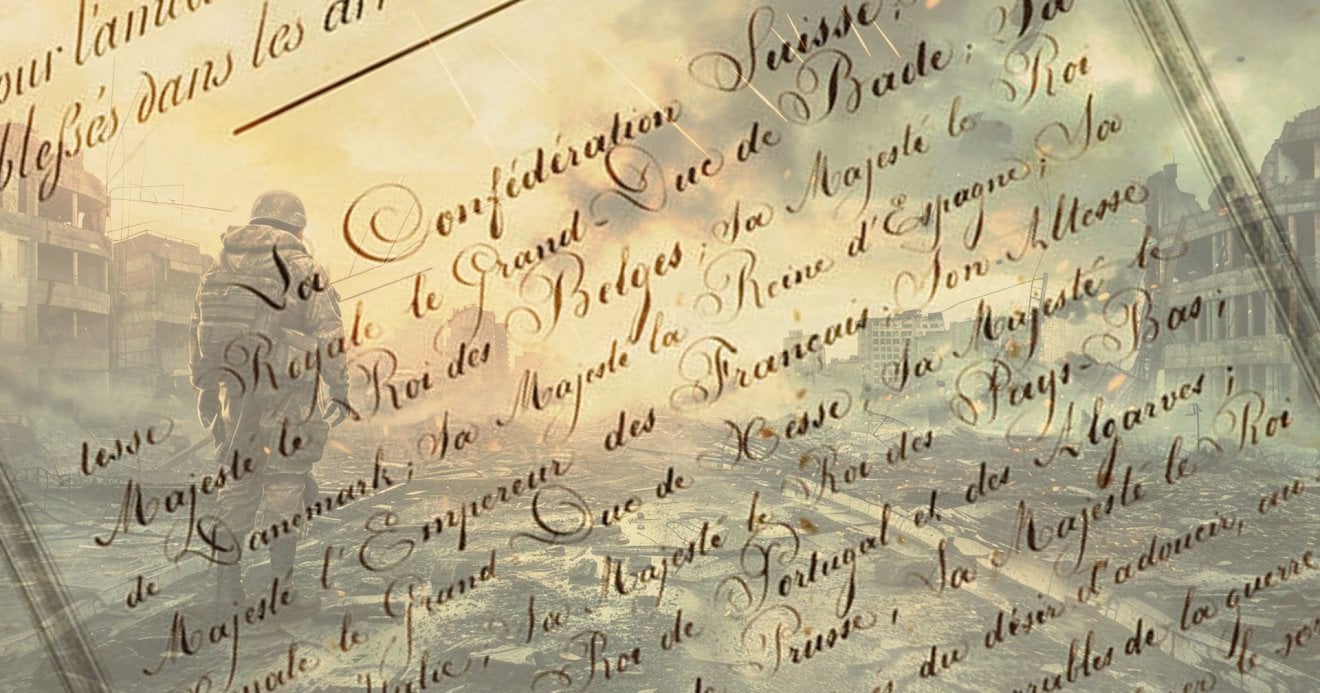 pour l'amé
blessés dans les ar
La Confédération Suisse; Sa
tesse Royale le Grand-Duc de Bade; Sa
Majesté le Roi des Belges; Sa Majesté le Roi
de Danemark; Sa Majesté la Reine d'Espagne; Sa
Majesté l'Empereur des Français; Son Altesse
Royale le Grand Duc de Hesse; Sa Majesté le
Italie; Sa Majesté le Roi des Pays-Bas;
Roi de Portugal et des Algarves;
Prusse, Sa Majesté le Roi
du désir d'adoucir, au
de la guerre
le